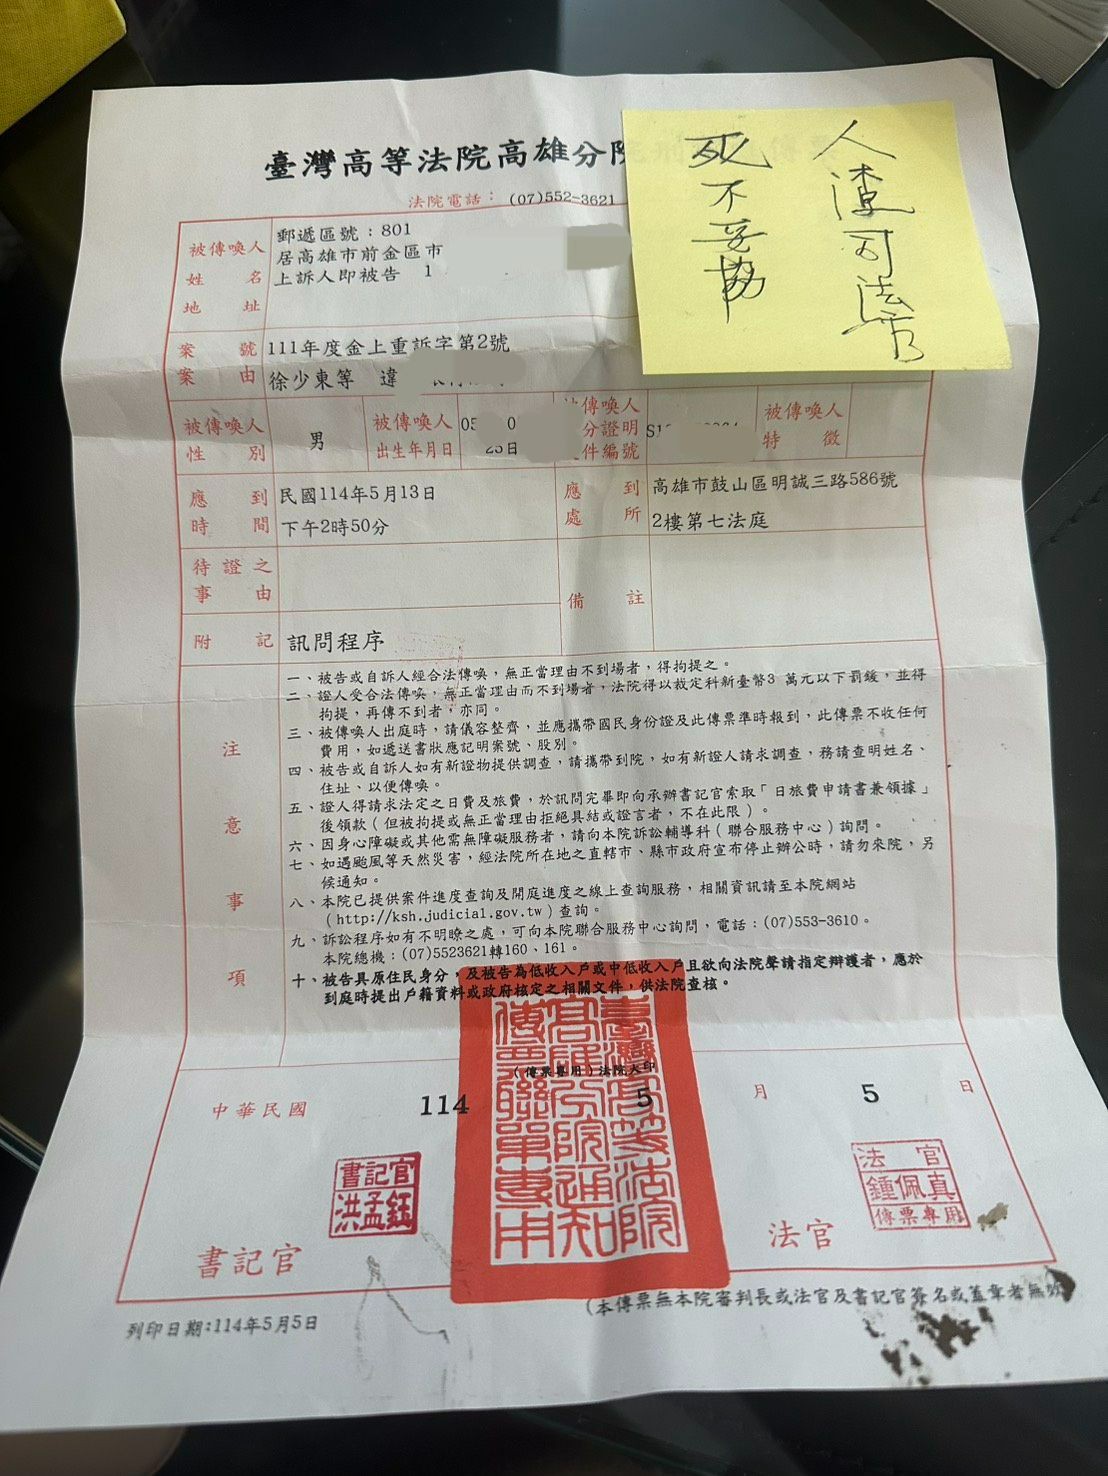 臺灣高等法院高雄分院
法院電話：(07)552-3621
人渣司法官
死不妥協
被傳喚人
姓名
地址
郵遞區號：801
居高雄市前金區市
上訴人即被告 1
案號
111年度金上重訴字第2號
案由
徐少東等 違
被傳喚人
性別
男
被傳喚人
出生年月日
05 0
日
被傳喚人
分證明
件編號
被傳喚人
特徵
應到
時間
民國114年5月13日
下午2時50分
應到
處所
高雄市鼓山區明誠三路586號
2樓第七法庭
待證之
事由
備註
附記
訊問程序
注意事項
一、被告或自訴人經合法傳喚，無正當理由不到場者，得拘提之。
二、證人受合法傳喚，無正當理由而不到場者，法院得以裁定科新臺幣3 萬元以下罰鍰，並得
拘提，再傳不到者，亦同。
三、被傳喚人出庭時，請儀容整齊，並應攜帶國民身份證及此傳票準時報到，此傳票不收任何
費用，如遞送書狀應記明案號、股別。
四、被告或自訴人如有新證物提供調查，請攜帶到院，如有新證人請求調查，務請查明姓名、
住址、以便傳喚。
五、證人得請求法定之日費及旅費，於訊問完畢即向承辦書記官索取「日旅費申請書兼領據」
後領款(但被拘提或無正當理由拒絕具結或證言者，不在此限)。
六、因身心障礙或其他需無障礙服務者，請向本院訴訟輔導科(聯合服務中心)詢問。
七、如遇颱風等天然災害，經法院所在地之直轄市、縣市政府宣布停止辦公時，請勿來院，另
候通知。
八、本院已提供案件進度查詢及開庭進度之線上查詢服務，相關資訊請至本院網站
(http://ksh.judicial.gov.tw)查詢。
九、訴訟程序如有不明瞭之處，可向本院聯合服務中心詢問，電話：(07)553-3610。
本院總機：(07)5523621轉160、161。
十、被告具原住民身分，及被告為低收入戶或中低收入戶且欲向法院聲請指定辯護者，應於
到庭時提出戶籍資料或政府核定之相關文件，供法院查核。
(傳票專用)法院大印
臺灣高等法院
高雄分院通知
傳票聯單專用
中華民國 114 5 月 5 日
書記官
洪孟鈺
書記官
法官
鍾佩真
傳票專用
法官
(本傳票無本院審判長或法官及書記官簽名或蓋章者無效)
列印日期:114年5月5日